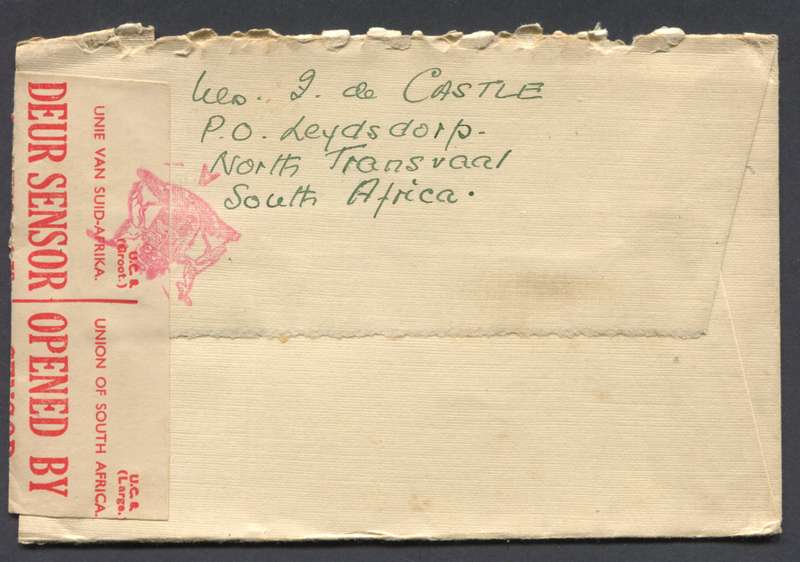 Mrs. I. de CASTLE
P.O. Leydsdorp.
North Transvaal
South Africa.
DEUR SENSOR | OPENED BY
UNIE VAN SUID-AFRIKA.
UNION OF SOUTH AFRICA.
U.C. 8
(Groot.)
U.C. 8
(Large.)